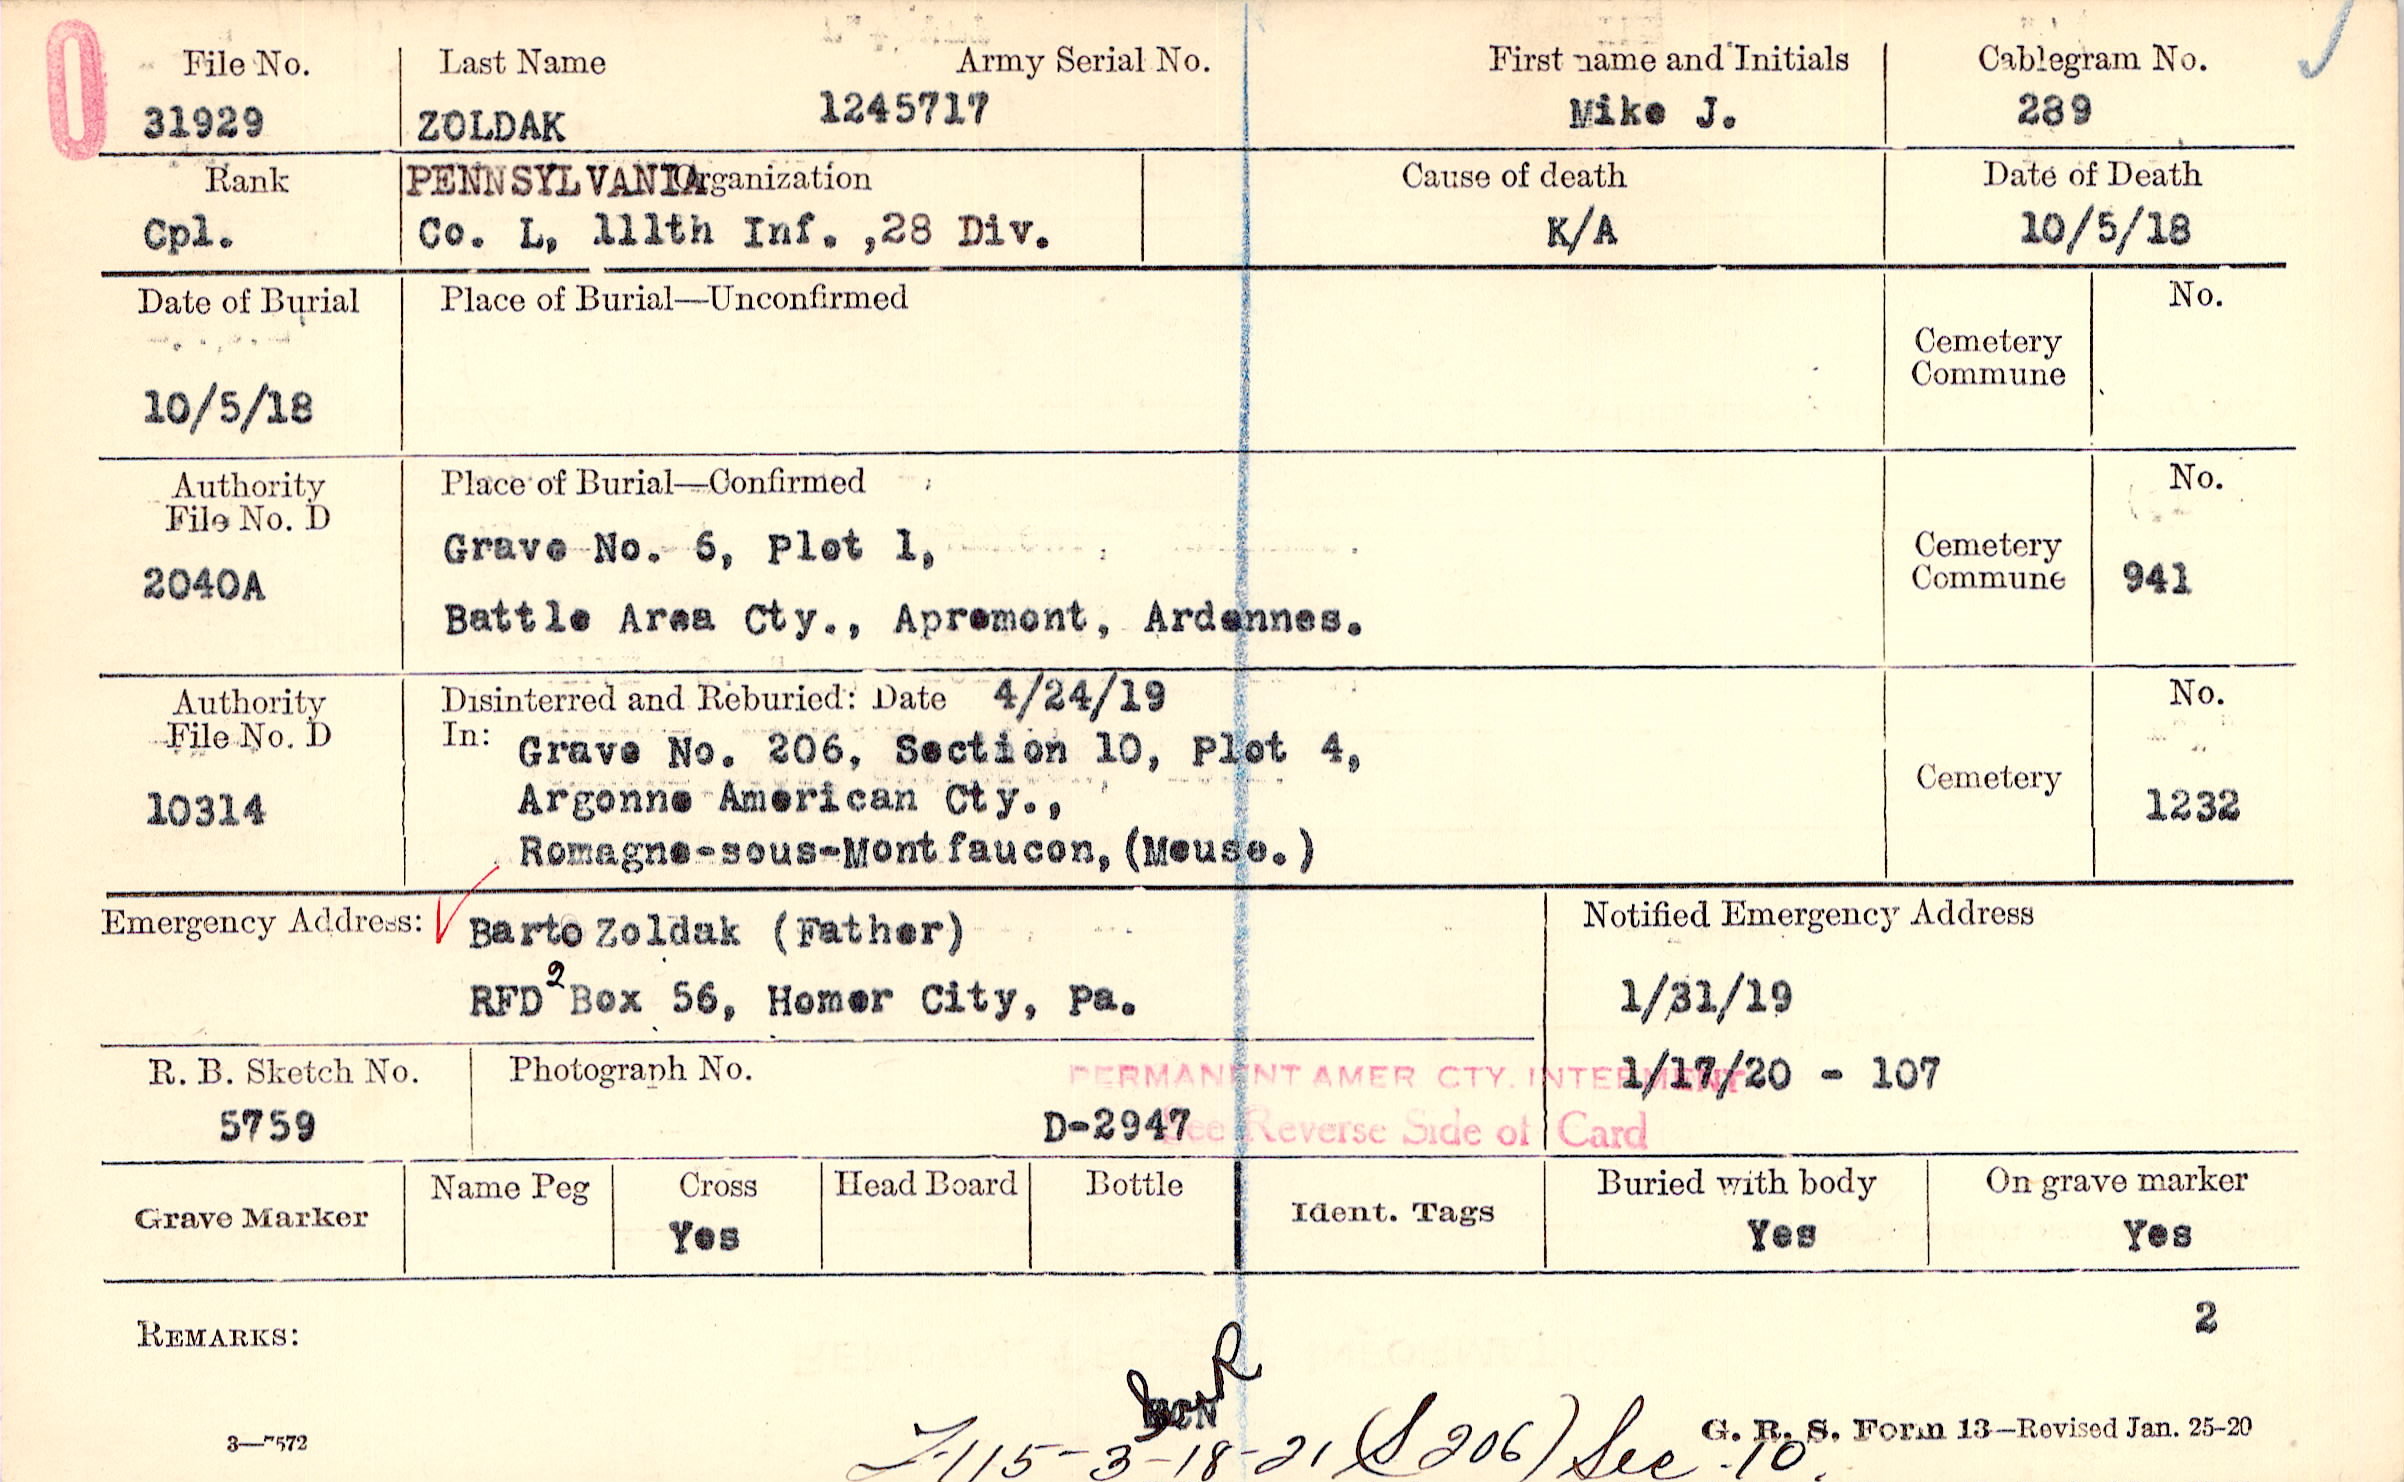 0
File No. Last Name Army Serial No. First name and Initials Cablegram No.
31929 ZOLDAK 1245717 Mike J. 289
Rank PENNSYLVANIA Organization Cause of death Date of Death
Cpl. Co. L, 111th Inf. ,28 Div. K/A 10/5/18
Date of Burial Place of Burial—Unconfirmed No.
Cemetery
Commune
10/5/18
Authority Place of Burial—Confirmed No.
File No. D
Grave No. 6, Plot 1, Cemetery
2040A Commune 941
Battle Area Cty., Apremont, Ardennes.
Authority Disinterred and Reburied: Date 4/24/19 No.
File No. D In: Grave No. 206, Section 10, Plot 4,
10314 Argonne American Cty., Cemetery 1232
Romagne-sous-Montfaucon,(Meuse.)
Emergency Address: Barto Zoldak (Father) Notified Emergency Address
RFD 2 Box 56, Homer City, Pa. 1/31/19
R. B. Sketch No. Photograph No. PERMANENT AMER CTY. INTERMENT 1/17/20 - 107
5759 D-2947 See Reverse Side of Card
Grave Marker Name Peg Cross Head Board Bottle Ident. Tags Buried with body On grave marker
Yes Yes Yes
2
REMARKS:
3—7572 G. R. S. Form 13—Revised Jan. 25-20
115-3-18-21 (S 206) Sec. 10.